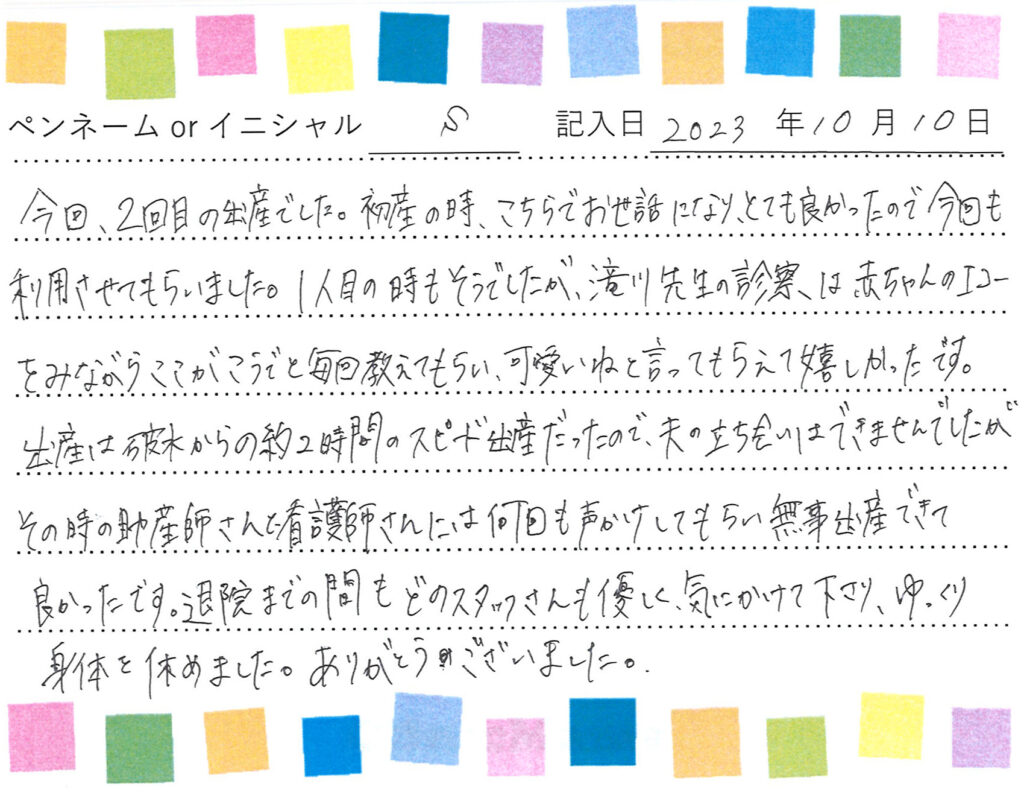 ペンネーム or イニシャル S 記入日 2023 年 10 月 10 日
今回、2回目の出産でした。初産の時、こちらでお世話になり、とても良かったので今回も
利用させてもらいました。1人目の時もそうでしたが、滝川先生の診察は赤ちゃんのエコー
をみながらここがこうでと毎回教えてもらい、可愛いねと言ってもらえて嬉しかったです。
出産は破水からの約2時間のスピード出産だったので、夫の立ち会いはできませんでしたが
その時の助産師さんと看護師さんには何回も声かけしてもらい無事出産できて
良かったです。退院までの間もどのスタッフさんも優しく、気にかけて下さり、ゆっくり
身体を休めました。ありがとうございました。